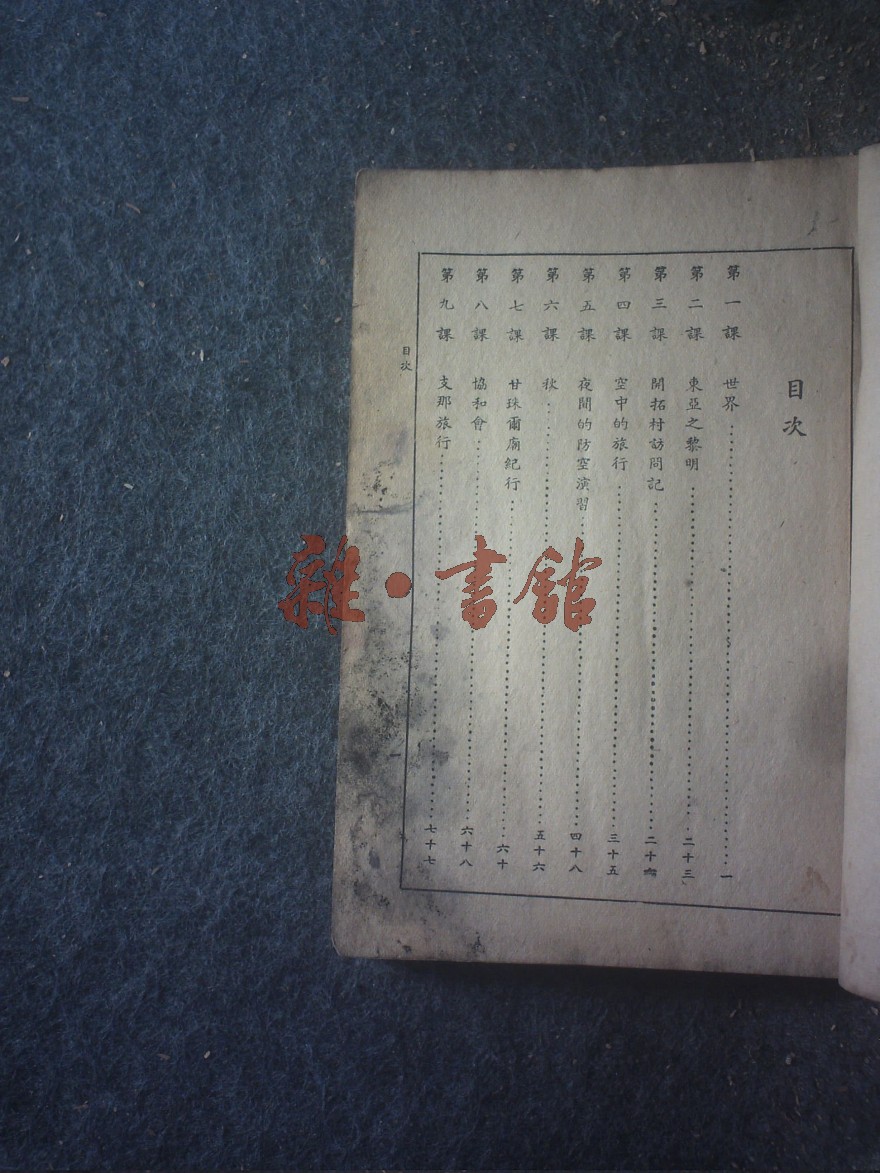 目次
第一課 世界 一
第二課 東亞之黎明 二十三
第三課 開拓村訪問記 二十六
第四課 空中的旅行 三十五
第五課 夜間的防空演習 四十八
第六課 秋 五十六
第七課 甘珠爾廟紀行 六十
第八課 協和會 六十八
第九課 支那旅行 七十七
目次
一
雜·書館